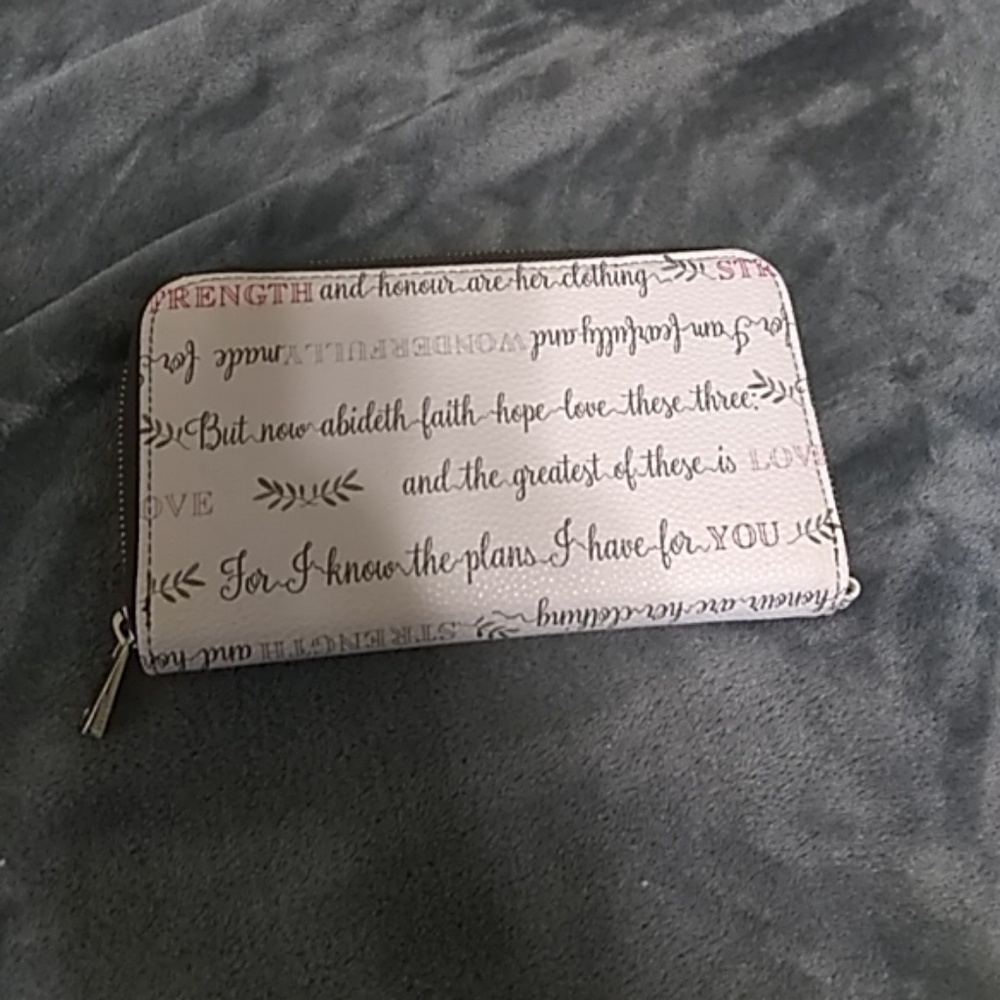 RENGTH and honour are her clothing STR
for I am fearfully and WONDERFULLY made for
But now abideth faith hope love these three:
and the greatest of these is LOV
OVE
For I know the plans I have for YOU
honour are her clothing
STRENGTH and hon